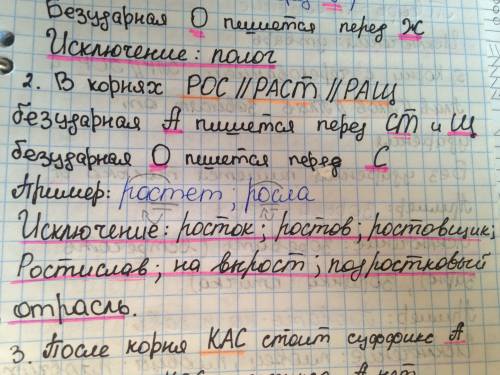 Безударная О пишется перед Ж
Исключение: полог
2. В корнях РОС // РАСТ // РАЩ
безударная А пишется перед СТ и Щ
безударная О пшется перед С
Пример: растет; росла
Исключение: росток; ростов; ростовщик;
Ростислав; на вырост; подростковый
отрасль.
3. После корня КАС стоит суффикс А